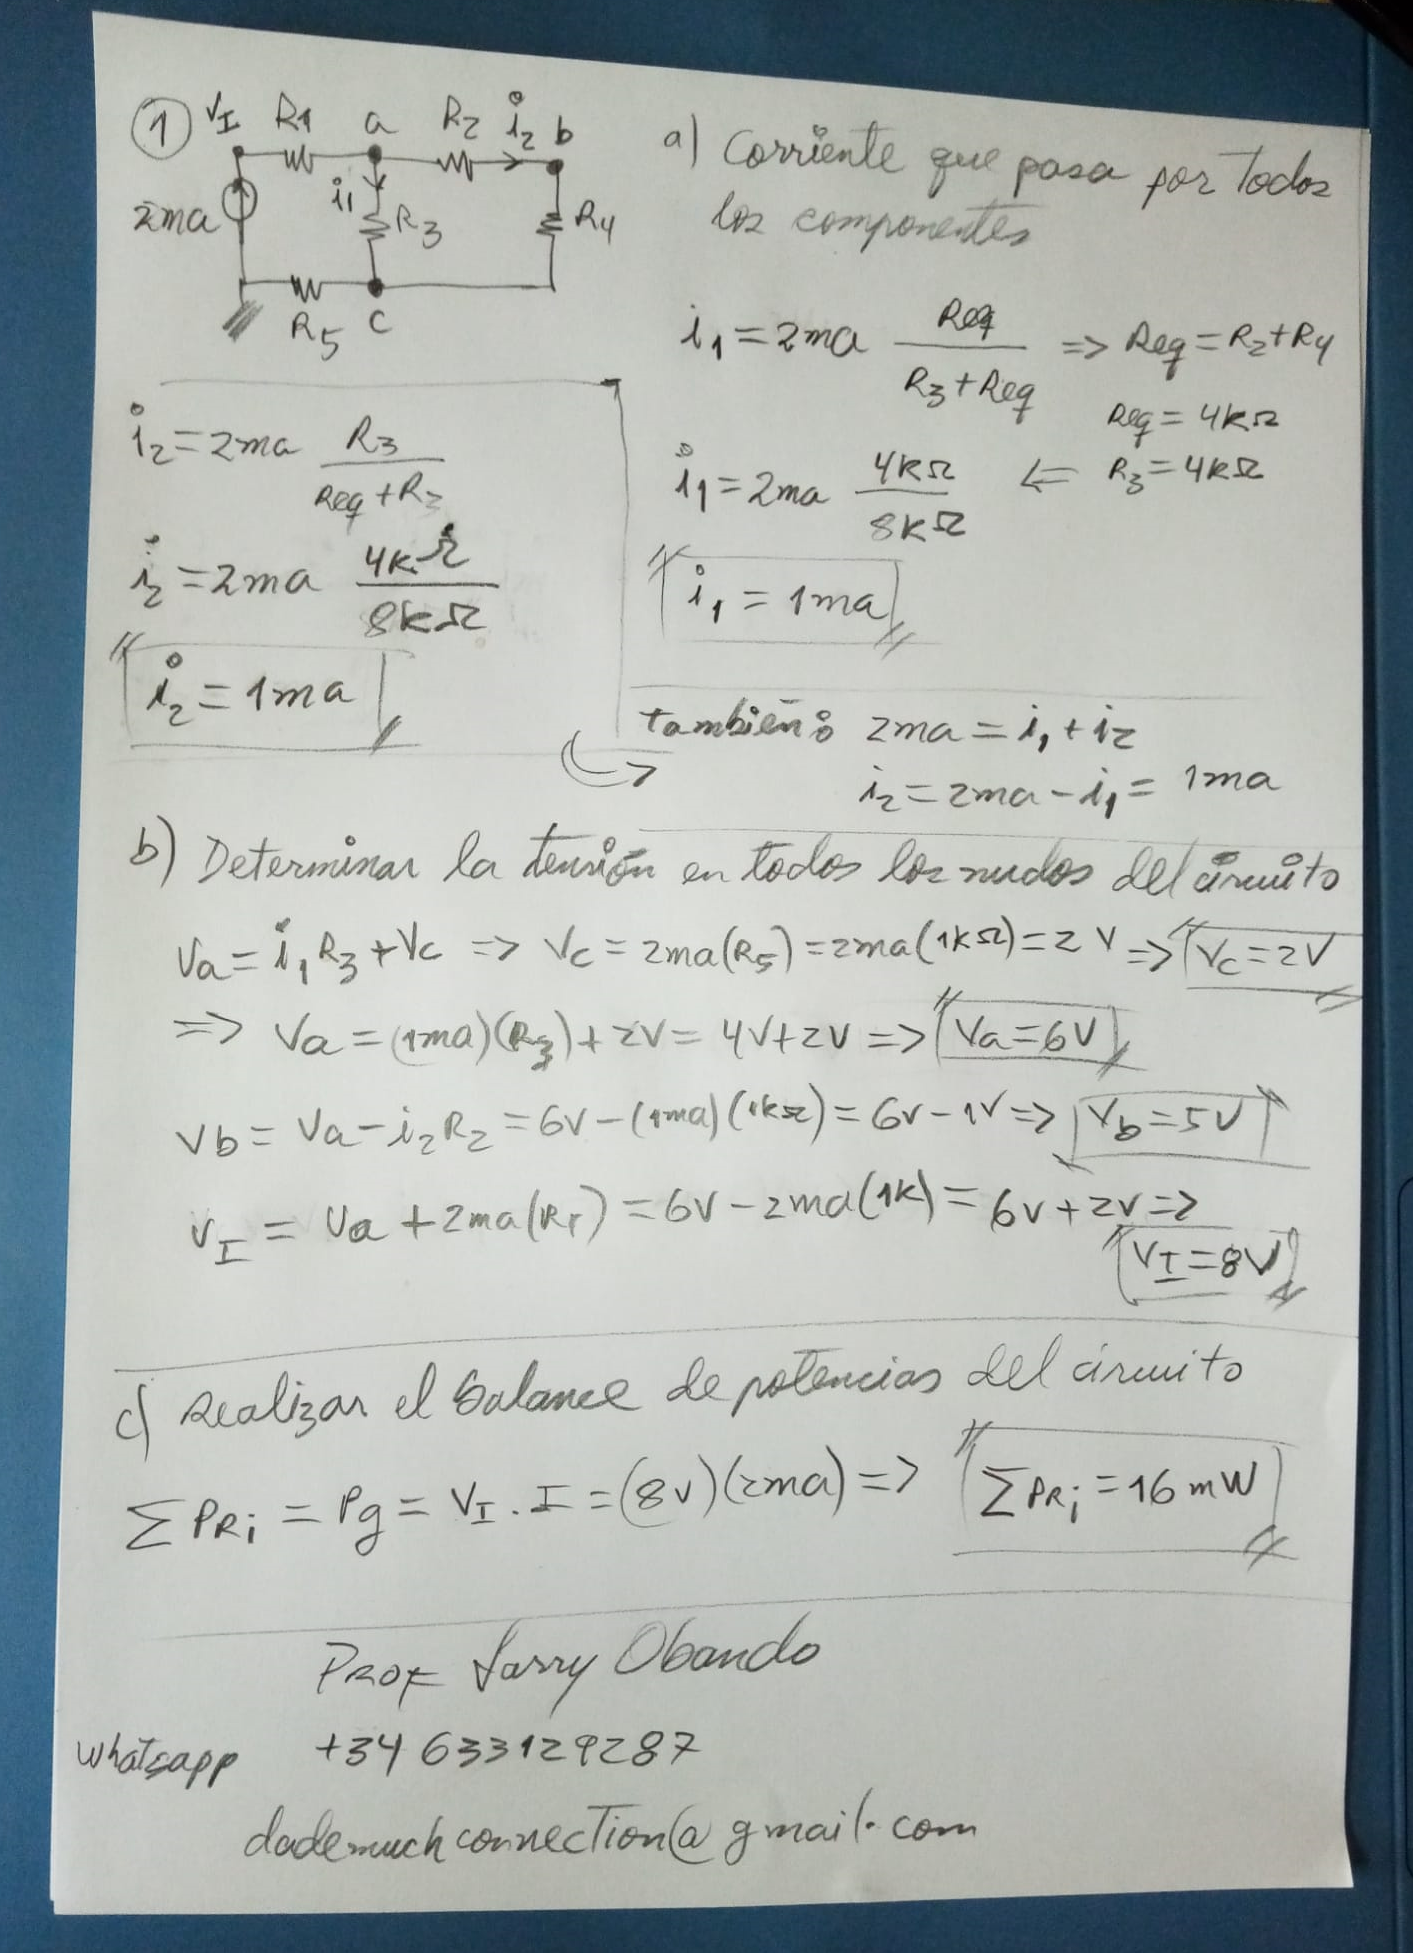 1
VI R1 a R2 i2 b
2ma i1 R3 R4
R5 c
a) Corriente que pasa por Todos
los componentes
i1 = 2ma Req / (R3 + Req) => Req = R2 + R4
Req = 4kΩ
i1 = 2ma 4kΩ / 8kΩ <= R3 = 4kΩ
i1 = 1ma
i2 = 2ma R3 / (Req + R3)
i2 = 2ma 4kΩ / 8kΩ
i2 = 1ma
también: 2ma = i1 + i2
i2 = 2ma - i1 = 1ma
b) Determinar la tensión en todos los nudos del circuito
Va = i1 R3 + Vc => Vc = 2ma(R5) = 2ma(1kΩ) = 2V => Vc = 2V
=> Va = (1ma)(R3) + 2V = 4V + 2V => Va = 6V
Vb = Va - i2 R2 = 6V - (1ma)(1kΩ) = 6V - 1V => Vb = 5V
VI = Va + 2ma(R1) = 6V - 2ma(1k) = 6V + 2V =>
VI = 8V
c) Realizar el balance de potencias del circuito
∑PRi = Pg = VI . I = (8V)(2ma) => ∑PRi = 16mW
Prof Larry Obando
Whatsapp +34 633129287
dademuchconnection@gmail.com